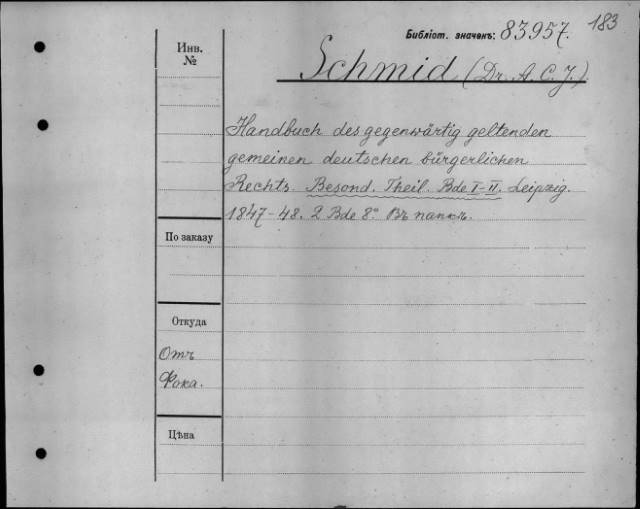 183
Библіот. значекъ: 83957.
Инв. №
Schmid (Dr. A. C. J.)
Handbuch des gegenwärtig geltenden
gemeinen deutschen bürgerlichen
Rechts. Besond. Theil. Bde I-II. Leipzig.
1847-48. 2 Bde 8° Въ папкѣ.
По заказу
Откуда
Отъ
Фока.
Цѣна